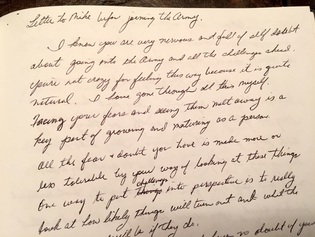 Letter to Mike before joining the Army.
I know you are very nervous and full of self doubt
about going into the Army and all the challenges ahead.
You're not crazy for feeling this way because it is quite
natural. I have gone through all this myself.
Facing your fears and seeing them melt away is a
key part of growing and maturing as a person.
All the fear & doubt you have is made more or
less tolerable by your way of looking at these things
One way to put challenges things into perspective is to really
look at how likely things will turn out and what the
will be if they do.
no doubt of your